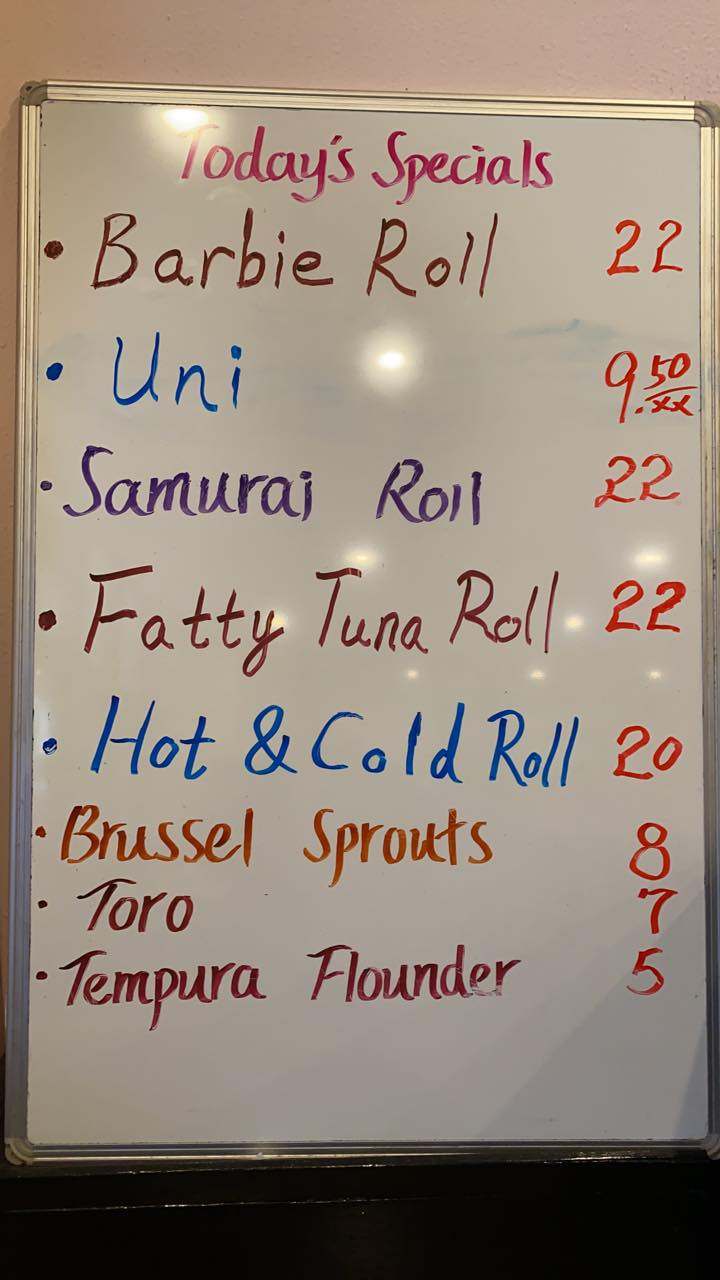 Today's Specials
• Barbie Roll 22
• Uni 9.50/xx
• Samurai Roll 22
• Fatty Tuna Roll 22
• Hot & Cold Roll 20
• Brussel Sprouts 8
• Toro 7
• Tempura Flounder 5